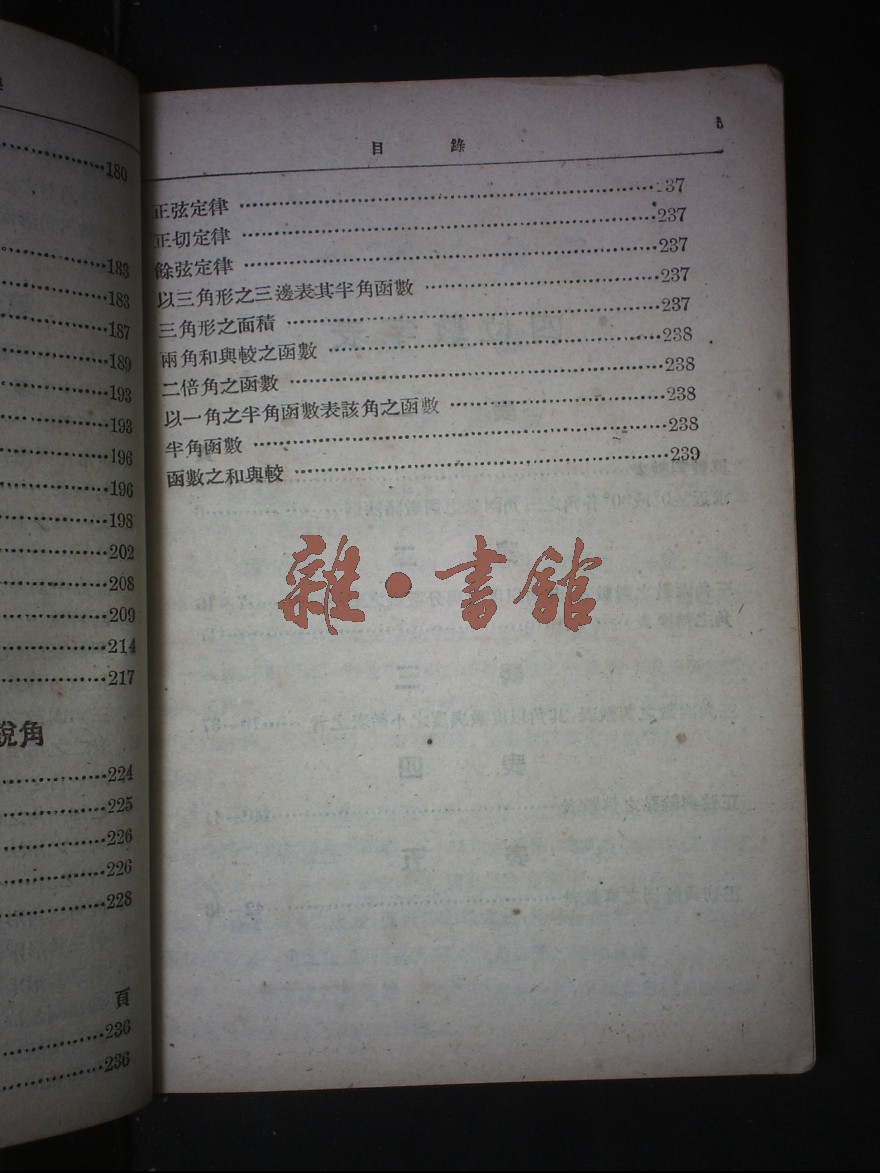 180
183
183
187
189
193
193
196
196
198
202
208
209
214
217
說角
224
225
226
226
228
頁
236
236
目 錄
正弦定律 237
正切定律 237
餘弦定律 237
以三角形之三邊表其半角函數 237
三角形之面積 237
兩角和與較之函數 238
二倍角之函數 238
以一角之半角函數表該角之函數 238
半角函數 238
函數之和與較 239
雜·書館